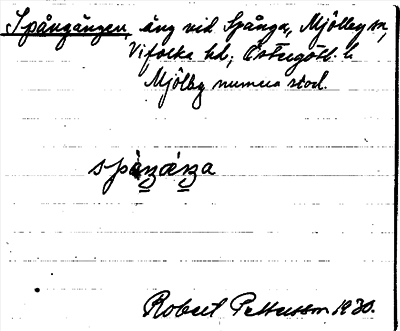 Spångängen, äng vid Spånga, Mjölby sn,
Vifolka hd, Östergötl. l.
Mjölby numera stad.
Robert Pettersson 1930.